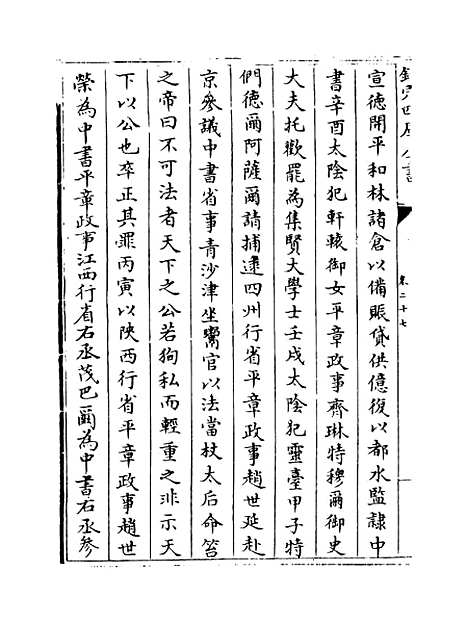 欽定四庫全書
卷二十七
宣徳開平和林諸倉以備賑貸供億復以都水監隷中
書辛酉太陰犯軒轅御女平章政事齊琳特穆爾御史
大夫托歡罷為集賢大學士壬戌太陰犯靈臺甲子特
們德爾阿薩爾請捕逮四州行省平章政事趙世延赴
京參議中書省事青沙津坐鬻官以法當杖太后命笞
之帝曰不可法者天下之公若狥私而輕重之非示天
下以公也卒正其罪丙寅以陜西行省平章政事趙世
榮為中書平章政事江西行省右丞茂巴爾為中書右丞參